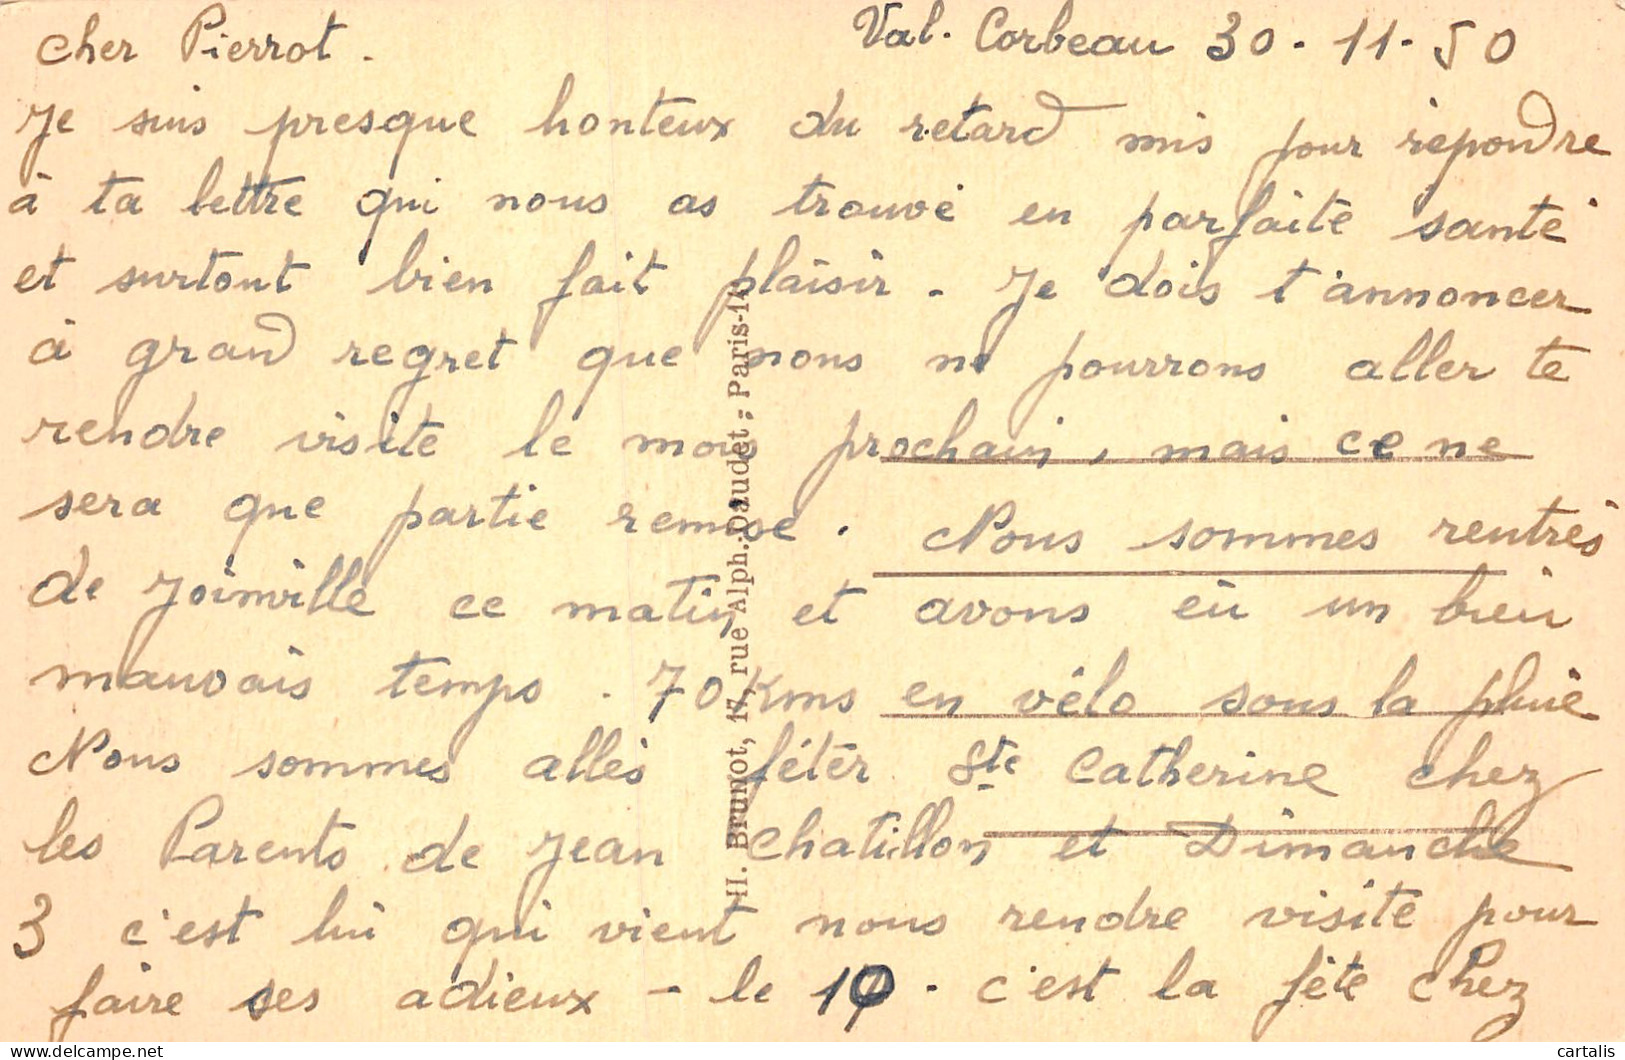 Cher Pierrot. Val. Corbeau 30-11-50
Je suis presque honteux du retard mis pour répondre
à ta lettre qui nous as trouvé en parfaite santé
et surtout bien fait plaisir - Je dois t'annoncer
à grand regret que nous ne pourrons aller te
rendre visite le mois prochain, mais ce ne
sera que partie remise. Nous sommes rentrés
de Joinville ce matin et avons eu un bien
mauvais temps. 70 Kms en vélo sous la pluie
Nous sommes allés fêter Ste Catherine chez
les Parents de Jean Chatillon et Dimanche
3 c'est lui qui vient nous rendre visite pour
faire ses adieux - le - c'est la fête chez
H. Brunot, 17, rue Alph.-Daudet ; Paris-14
cartalis